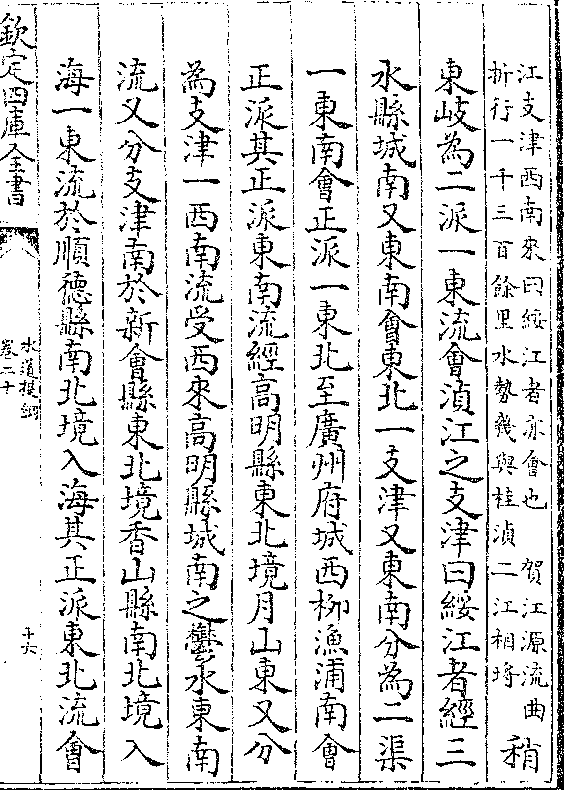 江支津西南來曰綏江者亦會也　賀江源流曲
折行一千三百餘里水勢幾與桂湞二江相埒
稍
東岐為二派一東流會湞江之支津曰綏江者經三
水縣城南又東南會東北一支津又東南分為二渠
一東南會正派一東北至廣州府城西柳漁浦南會
正派其正派東南流經高明縣東北境月山東又分
為支津一西南流受西來高明縣城南之鸞水東南
流又分支津南於新會縣東北境香山縣南北境入
海一東流於順德縣南北境入海其正派東北流會
欽定四庫全書
水道提綱
卷二十
十六